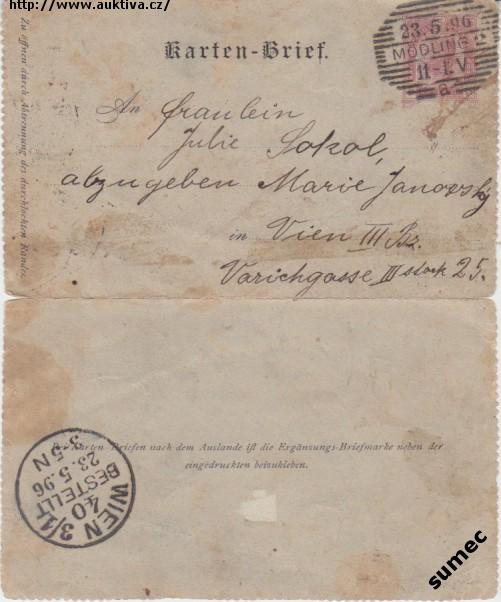 http://www.auktiva.cz/
Karten-Brief.
23.5.96
MÖDLING 2
11-1.V
a
Zu öffnen durch Abtrennung des durchlochten Randes.
An Fraulein
Julie Sokol,
abzugeben Marie Janovsky
in Wien III Bz.
III stock 25.
Bei Karten-Briefen nach dem Auslande ist die Ergänzungs-Briefmarke neben der
eingedruckten beizukleben.
WIEN 3/1
40
BESTELLT
23.5.96
3-5N
sumec